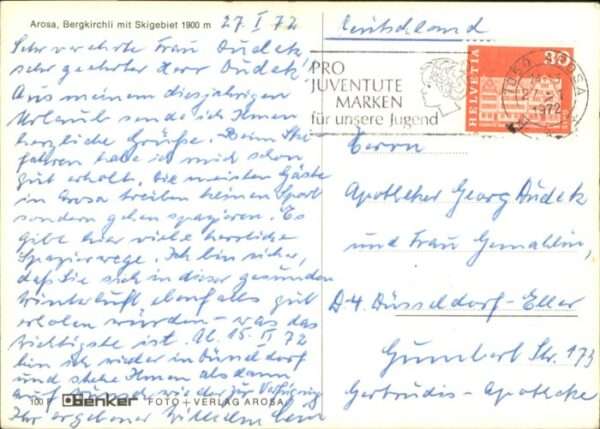 Arosa, Bergkirchli mit Skigebiet 1900 m
27. I 72
Sehr verehrte Frau Dudek,
sehr geehrter Herr Dudek!
Aus meinem diesjährigen
Urlaub sende ich Ihnen
herzliche Grüße. Beim Ski-
fahren habe ich mich schon
gut erholt. Die meisten Gäste
in Arosa treiben keinen Sport
sondern gehen spazieren. Es
gibt hier viele herrliche
Spazierwege. Ich bin sicher,
daß Sie sich in dieser gesunden
Winterluft ebenfalls gut
erholen würden – was das
wichtigste ist. Ab 15. II 72
bin ich wieder in Düsseldorf
und stehe Ihnen alsdann
auf Wunsch wieder zur Verfügung
Ihr ergebener Wilhelm
100 F
benker FOTO + VERLAG AROSA
Deutschland
PRO
JUVENTUTE
MARKEN
für unsere Jugend
HELVETIA
30
7050 AROSA
1972
Herrn
Apotheker Georg Dudek
und Frau Gemahlin,
D-4 Düsseldorf-Eller
Gumbert Str. 173
Gertrudis-Apotheke